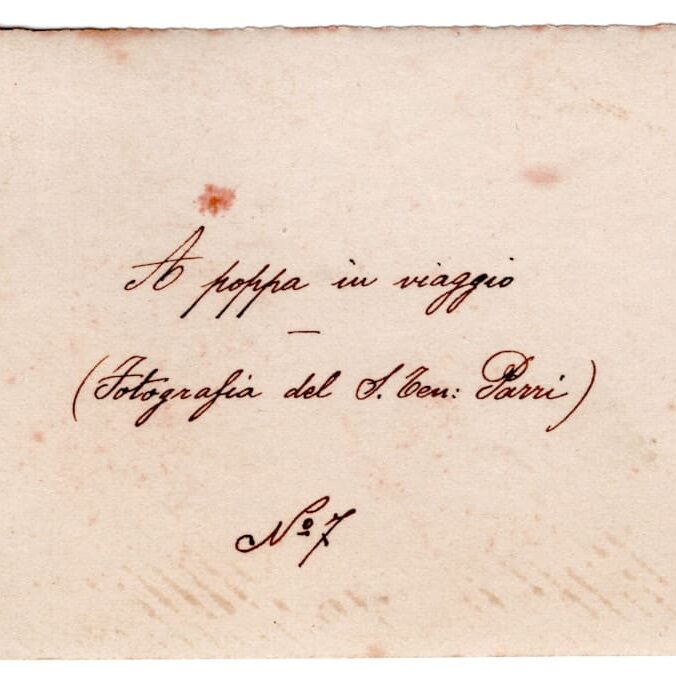 A poppa in viaggio
—
(Fotografia del S. Ten: Parri)
Nº 7